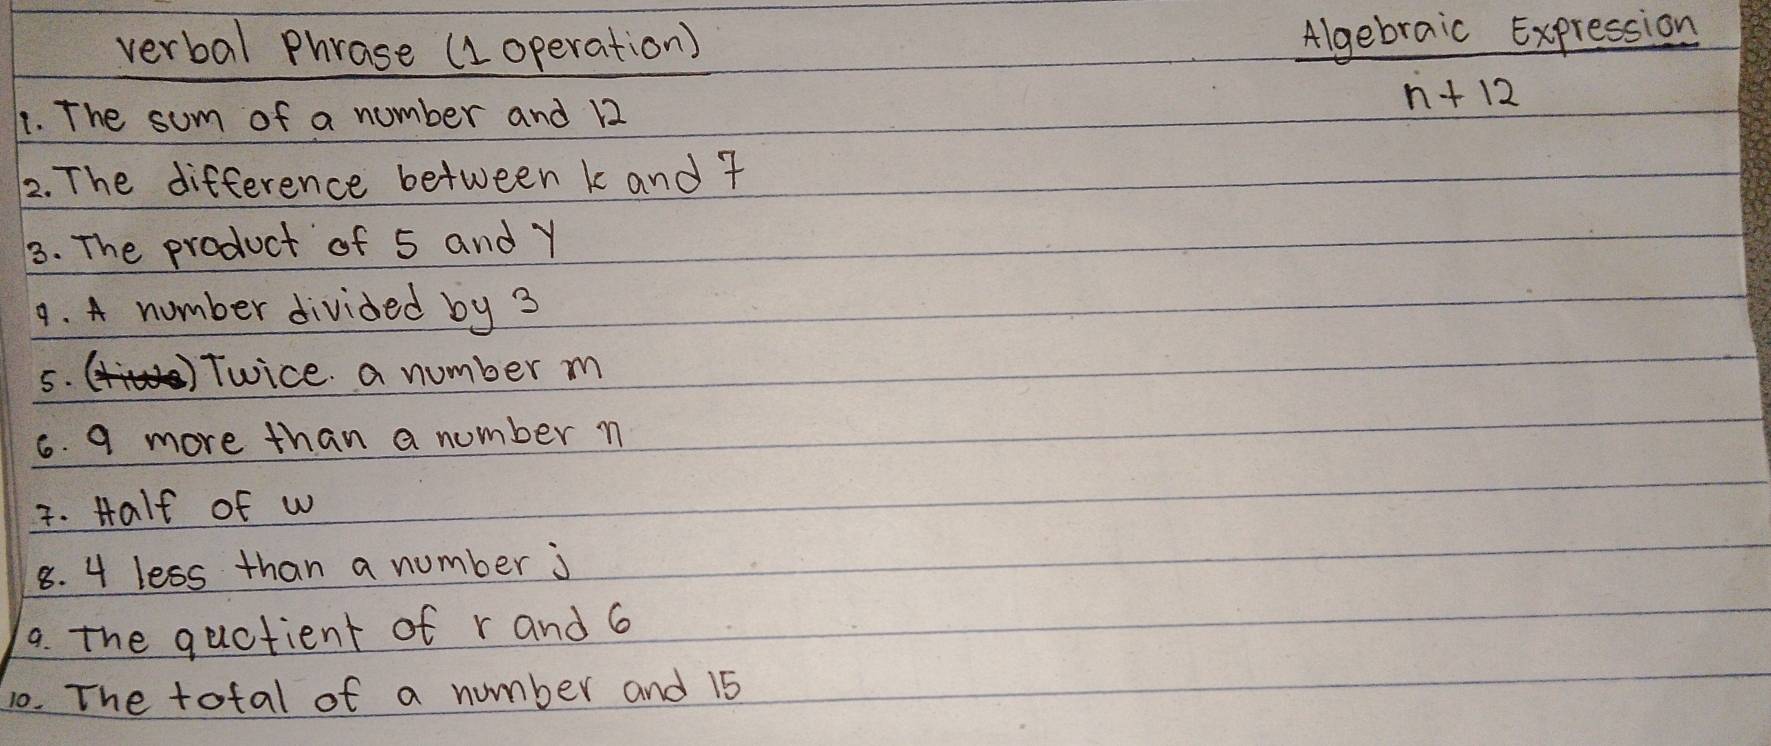 verbal Phrase (1 operation)
Algebraic Expression
1. The sum of a number and 12
n + 12
2. The difference between k and 7
3. The product of 5 and y
4. A number divided by 3
5. () Twice. a number m
6. 9 more than a number n
7. Half of w
8. 4 less than a number j
9. The quotient of r and 6
10. The total of a number and 15